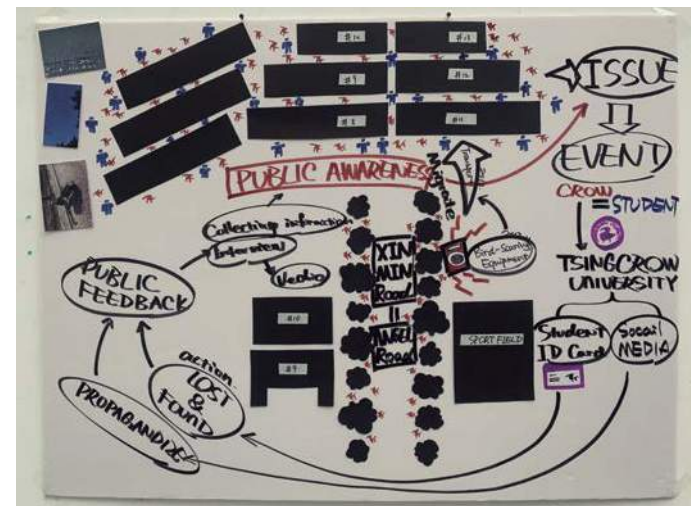 #14
#13
#9
#12
#8
#11
ISSUE
EVENT
CROW
= STUDENT
TSINGCROW
UNIVERSITY
Student
ID Card
Socail
MEDIA
PUBLIC AWARENESS
Migrate
Bird-Scaring
Equipment
Collecting information
Interview
Vedio
PUBLIC
FEEDBACK
XIN
MIN
Road
Road
#10
#9
SPORT FIELD
action
LOST
&
FOUND
PROPAGANDIZE